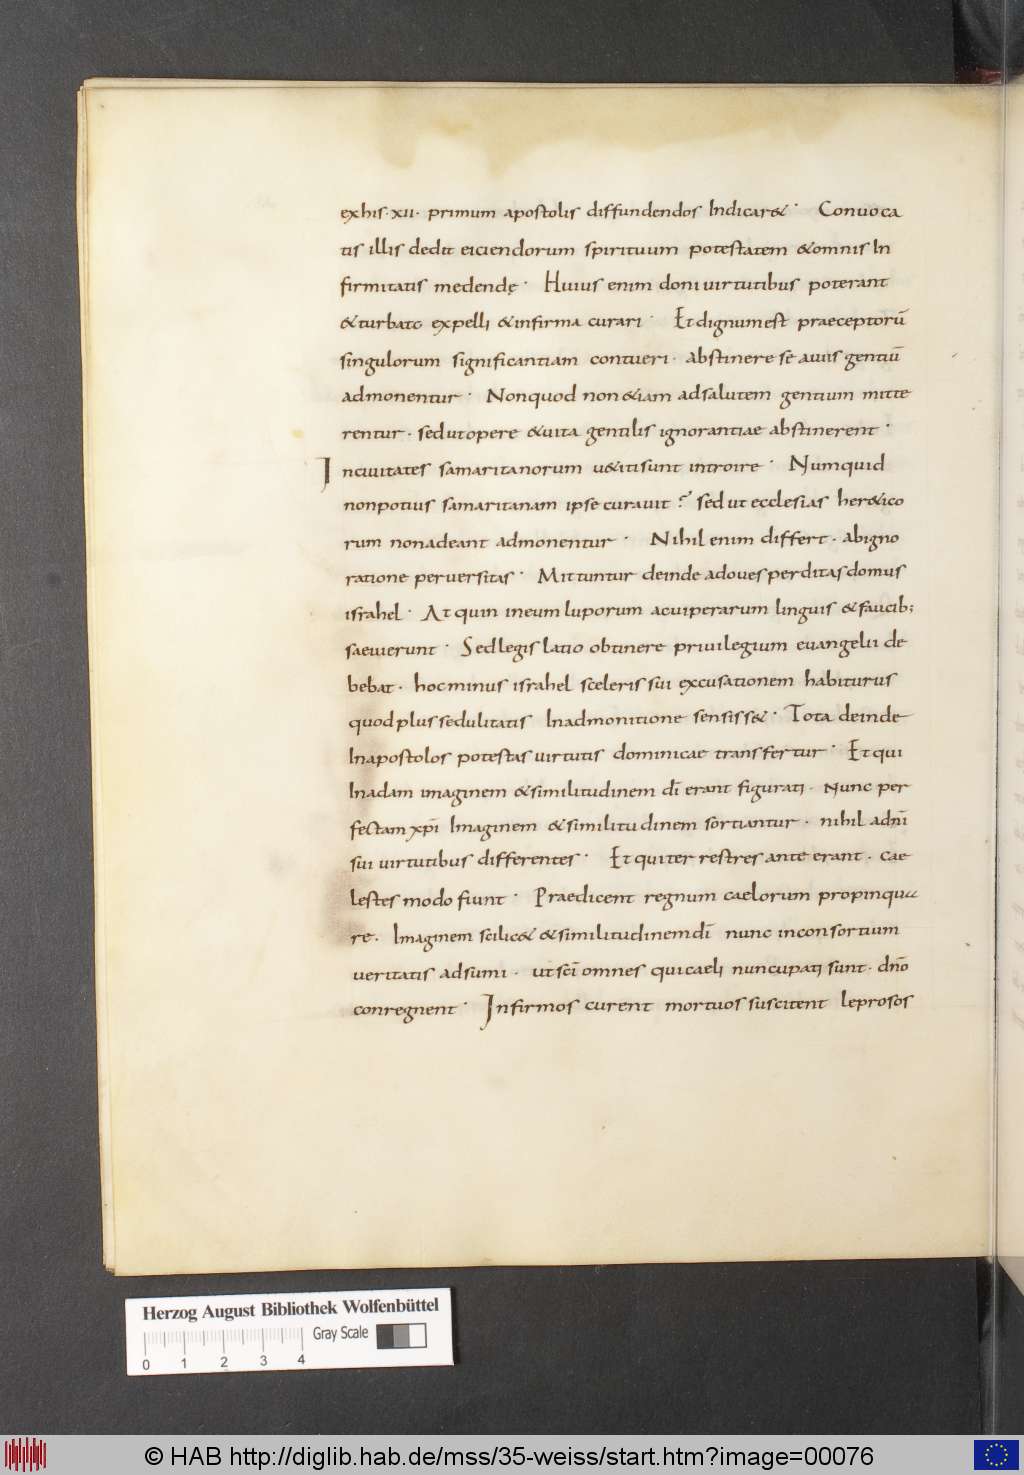 exhis· xii· primum apostolis diffundendos Indicar&· Conuoca
tis illis dedit eiciendorum spirituum potestatem &omnis In
firmitatis medendę· Huius enim doni uirtutibus poterant
&turbato expelli &infirma curari· Et dignum est praeceptorū
singulorum significantiam contueri· abstinere se a uiis gentiū
admonentur· Nonquod non &iam adsalutem gentium mitte
rentur· sed ut opere &uita gentilis ignorantiae abstinerent·
Inciuitates samaritanorum u&iti sunt introire· Numquid
nonpotius samaritanam ipse curauit? sed ut ecclesias her&ico
rum non adeant admonentur· Nihil enim differt· ab igno
ratione peruersitas· Mittuntur deinde ad oues perditas domus
israhel· At quin in eum luporum ac uiperarum linguis &faucib;
saeuierunt· Sed legis latio obtinere priuilegium euangelii de
bebat· hoc minus israhel sceleris sui excusationem habiturus
quod plus sedulitatis In admonitione sensiss&· Tota deinde
In apostolos potestas uirtutis dominicae transfertur· Et qui
In adam imaginem &similitudinem dī erant figurati· Nunc per
fectam xpī Imaginem &similitudinem sortiantur· nihil ad nī
sui uirtutibus differentes· Et qui terrestres ante erant· cae
lestes modo fiunt· Praedicent regnum caelorum propinqua
re· Imaginem scilic& &similitudinem dī nunc in consortium
ueritatis adsumi· ut scī omnes qui caeli nuncupati sunt· dn̄o
conregnent· Infirmos curent mortuos suscitent leprosos
Herzog August Bibliothek Wolfenbüttel
Gray Scale
0 1 2 3 4
© HAB http://diglib.hab.de/mss/35-weiss/start.htm?image=00076